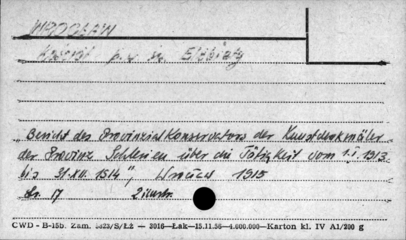 WROCŁAW
Kościół p.w. św. Elżbiety
"Bericht des Provinzialkonservators der Kunstdenkmäler
der Provinz Schlesien über die Tätigkeit vom 1.I.1913
bis 31.XII.1914", Breslau 1915
str. 17 2 ilustr.
CWD - B-15b. Zam. 5823/S/Łż — 2016—Łak—15.11.56—4.000.000—Karton kl. IV A1/200 g